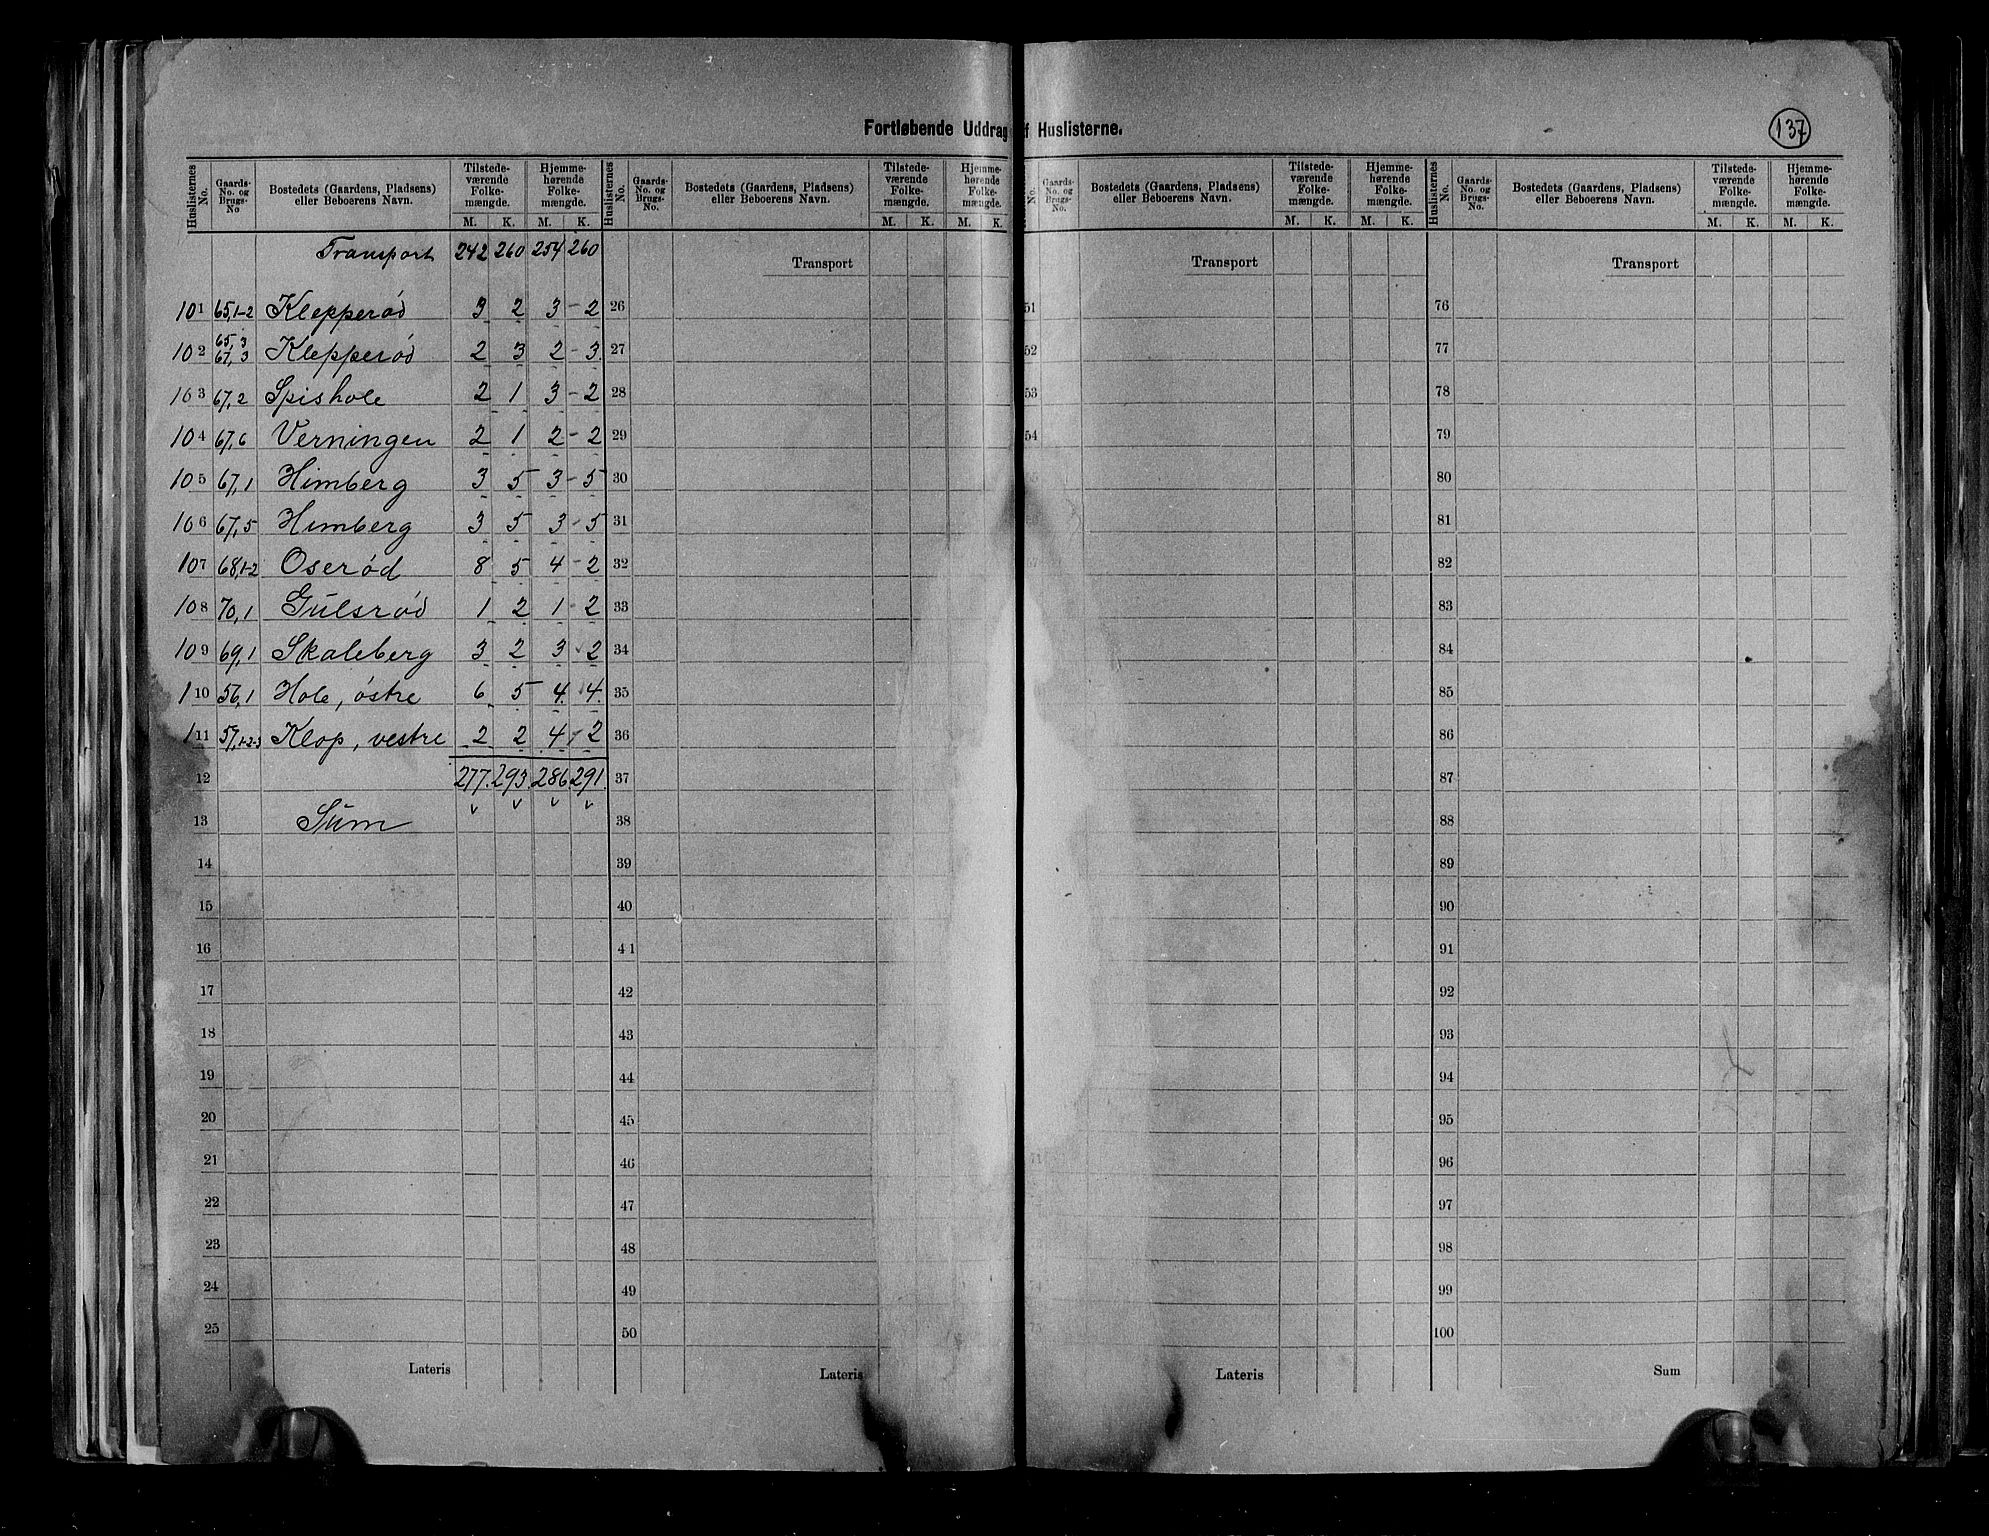 Fortløbende Uddrag f Huslisterne.
137
Huslisternes No. Gaards-No. og Brugs-No Bostedets (Gaardens, Pladsens) eller Beboerens Navn. Tilstedeværende Folkemængde. M. K. Hjemmehørende Folkemængde. M. K.
Transport 242 260 254 260
101 65,1-2 Klepperød 3 2 3 - 2
102 65,3 67,3 Klepperød 2 3 2 - 3
103 67,2 Spishole 2 1 3 - 2
104 67,6 Verningen 2 1 2 - 2
105 67,1 Himberg 3 5 3 - 5
106 67,5 Himberg 3 5 3 - 5
107 68,1-2 Oserød 8 5 4 - 2
108 70,1 Gulsrød 1 2 1 - 2
109 69,1 Skaleberg 3 2 3 2
110 56,1 Hole, østre 6 5 4 4
111 57,1-2-3 Klop, vestre 2 2 4 - 2
12 277. 293. 286. 291.
13 Sum
14
15
16
17
18
19
20
21
22
23
24
25
Lateris
Huslisternes No. Gaards-No. og Brugs-No. Bostedets (Gaardens, Pladsens) eller Beboerens Navn. Tilstedeværende Folkemængde. M. K. Hjemmehørende Folkemængde. M. K.
Transport
26
27
28
29
30
31
32
33
34
35
36
37
38
39
40
41
42
43
44
45
46
47
48
49
50
Lateris
No. Gaards-No. og Brugs-No. Bostedets (Gaardens, Pladsens) eller Beboerens Navn. Tilstedeværende Folkemængde. M. K. Hjemmehørende Folkemængde. M. K.
Transport
51
52
53
54
Lateris
Huslisternes No. Gaards-No. og Brugs-No. Bostedets (Gaardens, Pladsens) eller Beboerens Navn. Tilstedeværende Folkemængde. M. K. Hjemmehørende Folkemængde. M. K.
Transport
76
77
78
79
80
81
82
83
84
85
86
87
88
89
90
91
92
93
94
95
96
97
98
99
100
Sum